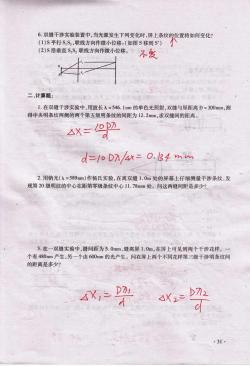 6. 双缝干涉实验装置中,当光源发生下列变化时,屏上条纹的位置将如何变化?
(1)S平行S₁S₂联线方向作微小位移;(如图S移到S')
↑
(2)S沿垂直S₁S₂联线方向作微小位移。
不变
二、计算题:
1. 在双缝干涉实验中,用波长λ=546.1nm的单色光照射,双缝与屏距离D=300mm,测
得中央明条纹两侧的两个第五级明条纹的间距为12.2mm,求双缝间的距离。
ΔX = 10Dλ/d
d=10Dλ/Δx = 0.134 mm
2. 用钠光(λ=589nm)作杨氏实验,在离双缝1.0m处的屏幕上仔细测量干涉条纹,发
现第20级明纹的中心在距第零级条纹中心11.78mm处。问这两缝间距是多少?
3. 在一双缝实验中,缝间距为5.0mm,缝离屏1.0m,在屏上可见到两个干涉花样,一
个有480nm产生,另一个由600nm的光产生。问在屏上两个不同花样第三级干涉明条纹间
的距离是多少?
ΔX₁ = Dλ₁/d ΔX₂ = Dλ₂/d
·31·